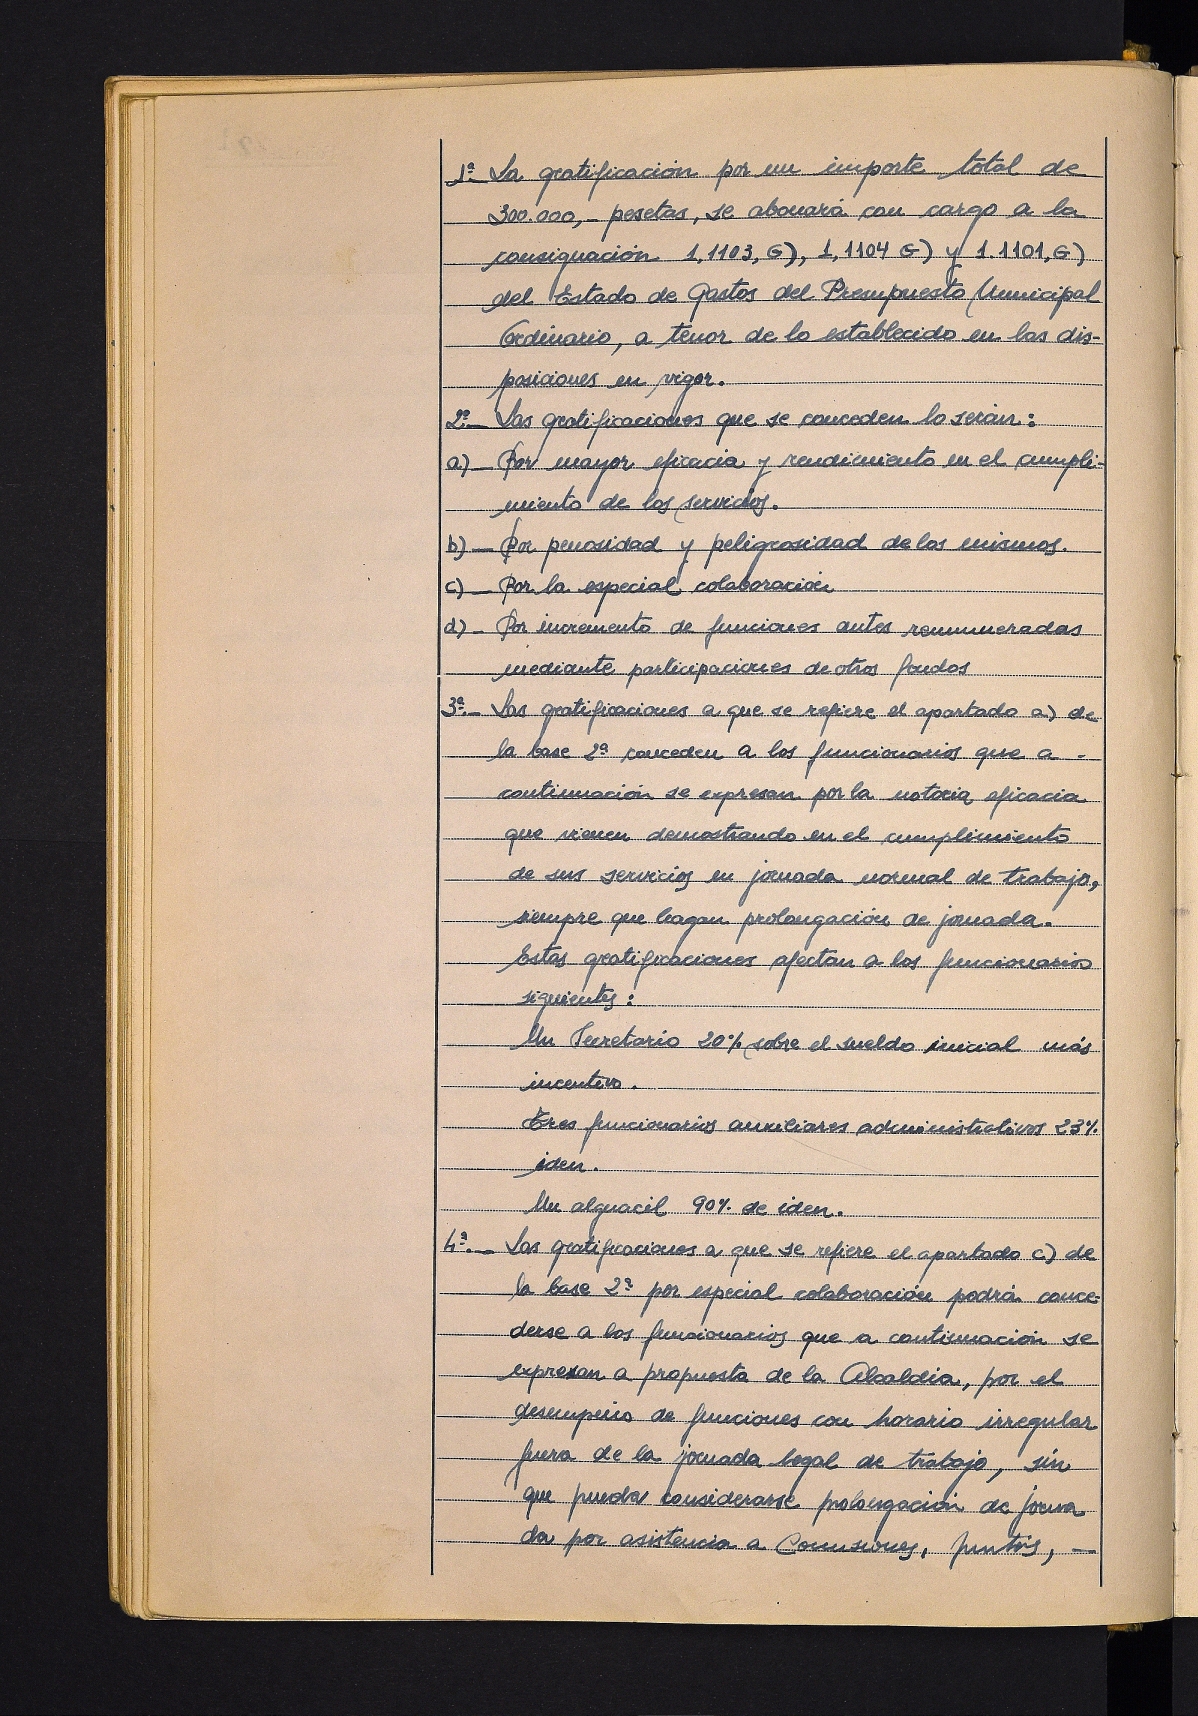 1ª.- La gratificación por un importe total de
300.000,- pesetas, se abonará con cargo a la
consignación 1.1103, G), 1.1104 G) y 1.1101, G)
del Estado de Gastos del Presupuesto Municipal
Ordinario, a tenor de lo establecido en las dis-
posiciones en vigor.
2ª.- Las gratificaciones que se conceden lo serán:
a) - Por mayor eficacia y rendimiento en el cumpli-
miento de los servicios.
b) - Por penosidad y peligrosidad de los mismos.
c) - Por la especial colaboración
d) - Por incremento de funciones antes remuneradas
mediante participaciones de otros fondos
3ª.- Las gratificaciones a que se refiere el apartado a) de
la base 2ª conceden a los funcionarios que a -
continuación se expresan por la notoria eficacia
que vienen demostrando en el cumplimiento
de sus servicios en jornada normal de trabajo,
siempre que hagan prolongación de jornada.
Estas gratificaciones afectan a los funcionarios
siguientes:
Un Secretario 20% sobre el sueldo inicial más
incentivo.
Tres funcionarios auxiliares administrativos 23%
iden.
Un alguacil 90% de iden.
4ª.- Las gratificaciones a que se refiere el apartado c) de
la base 2ª por especial colaboración podrán conce-
derse a los funcionarios que a continuación se
expresan a propuesta de la Alcaldia, por el
desempeño de funciones con horario irregular
fuera de la jornada legal de trabajo, sin
que pueda considerarse prolongación de jorna
da por asistencia a Comisiones, juntas, -